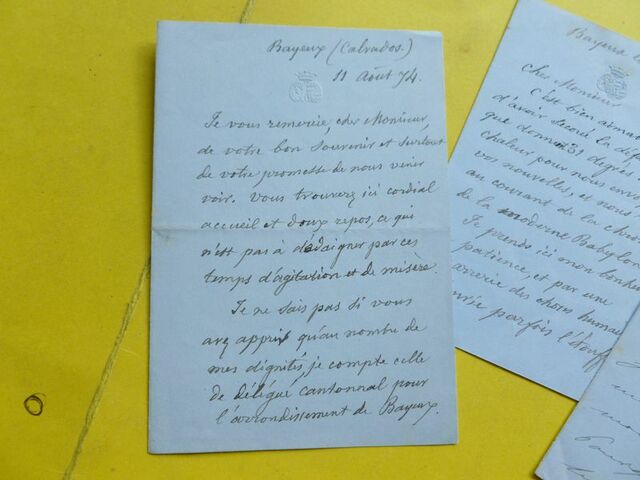 Bayeux (Calvados.)
11 Août 74.
Je vous remercie, cher Monsieur,
de votre bon souvenir et surtout
de votre promesse de nous venir
voir. Vous trouverez ici cordial
accueil et doux repos, ce qui
n'est pas à dédaigner par ces
temps d'agitation et de misère.
Je ne sais pas si vous
avez appris qu'au nombre de
mes dignités, je compte celle
de délégué cantonnal pour
l'arrondissement de Bayeux.
Bayeux
cher Monsieur
C'est bien aima
d'avoir
que donnent 31 degrés
chaleur pour nous
vos nouvelles, et nous
au courant de la
de la moderne Babylon
Je prends ici mon
patience, et par une
des choses humai
parfois